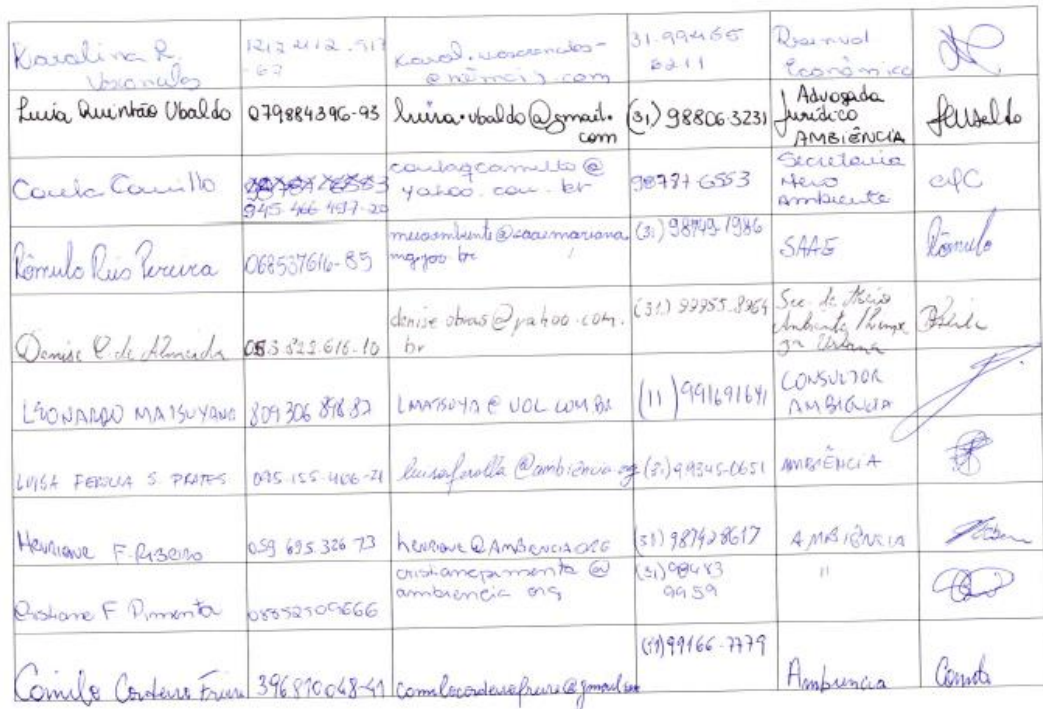 Karolina R. Vasconcelos
31.99466 6211
Econômico
Luisa Quintão Ubaldo 079884396-93 luisa.ubaldo@gmail.com (31) 98806-3231 Advogada Jurídico AMBIÊNCIA
Carla Camillo 945.466.497-20 yahoo.com.br 98787-6553 Secretaria Meio Ambiente CAC
Rômulo Reis Pereira 068537616-85 (31) 98749-1986 SAAE Rômulo
Denise C. de Almeida 053.822.616-10 denise.obras@yahoo.com.br (31) 99955-8964 Sec. de Meio Ambiente Urbana
LEONARDO MATSUYAMA 809306 898 87 LMATSUYA@UOL.COM.BR (11) 991691641 CONSULTOR AMBIÊNCIA
LUISA FEROLLA S. PRATES 095.155.466-21 luisaferolla@ambiência.org (31) 99345-0651 AMBIÊNCIA
HENRIQUE F. RIBEIRO 059 695.326 73 HENRIQUE@AMBIENCIA.ORG (31) 987428617 AMBIÊNCIA
Cristiane F Pimenta 05852509666 cristianepimenta@ambiencia org (31) 98483 9959 "
Camilo Cordeiro Freire 396870048-41 camilocordeirofreire@gmail.com (31) 99166-7779 Ambiencia Camilo